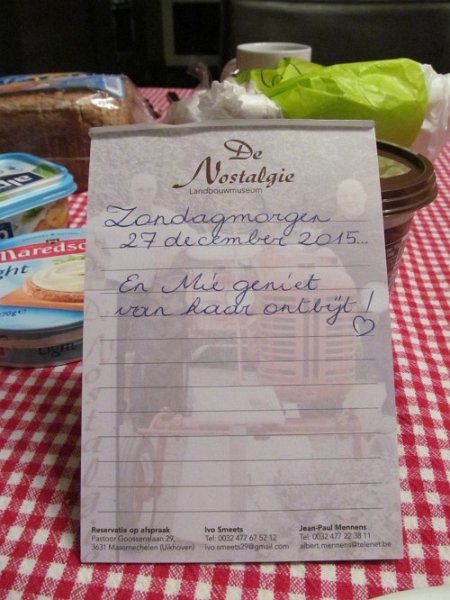 De
Nostalgie
Landbouwmuseum
Zondagmorgen
27 december 2015...
En Mie geniet
van haar ontbijt!
Maredso
ght
Light
Reservatie op afspraak
Pastoor Goossenslaan 29,
3631 Maasmechelen (Uikhoven)
Ivo Smeets
Tel: 0032 477 67 52 12
ivo.smeets29@gmail.com
Jean-Paul Mennens
Tel: 0032 477 22 38 11
albert.mennens@telenet.be